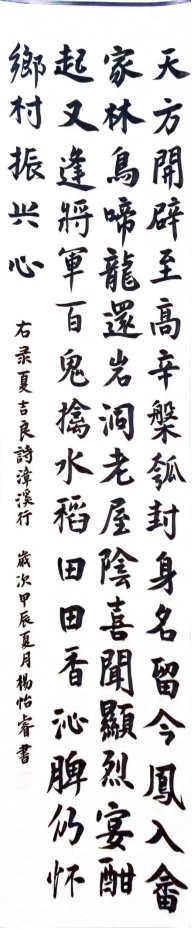 天方開辟至高辛槃瓠封身名留今鳳入畬
家林鳥啼龍還岩洞老屋陰喜聞顯烈宴酣
起又逢將軍百鬼擒水稻田田香沁脾仍怀
鄉村振兴心
右录夏吉良詩漳溪行 歲次甲辰夏月楊怡睿書